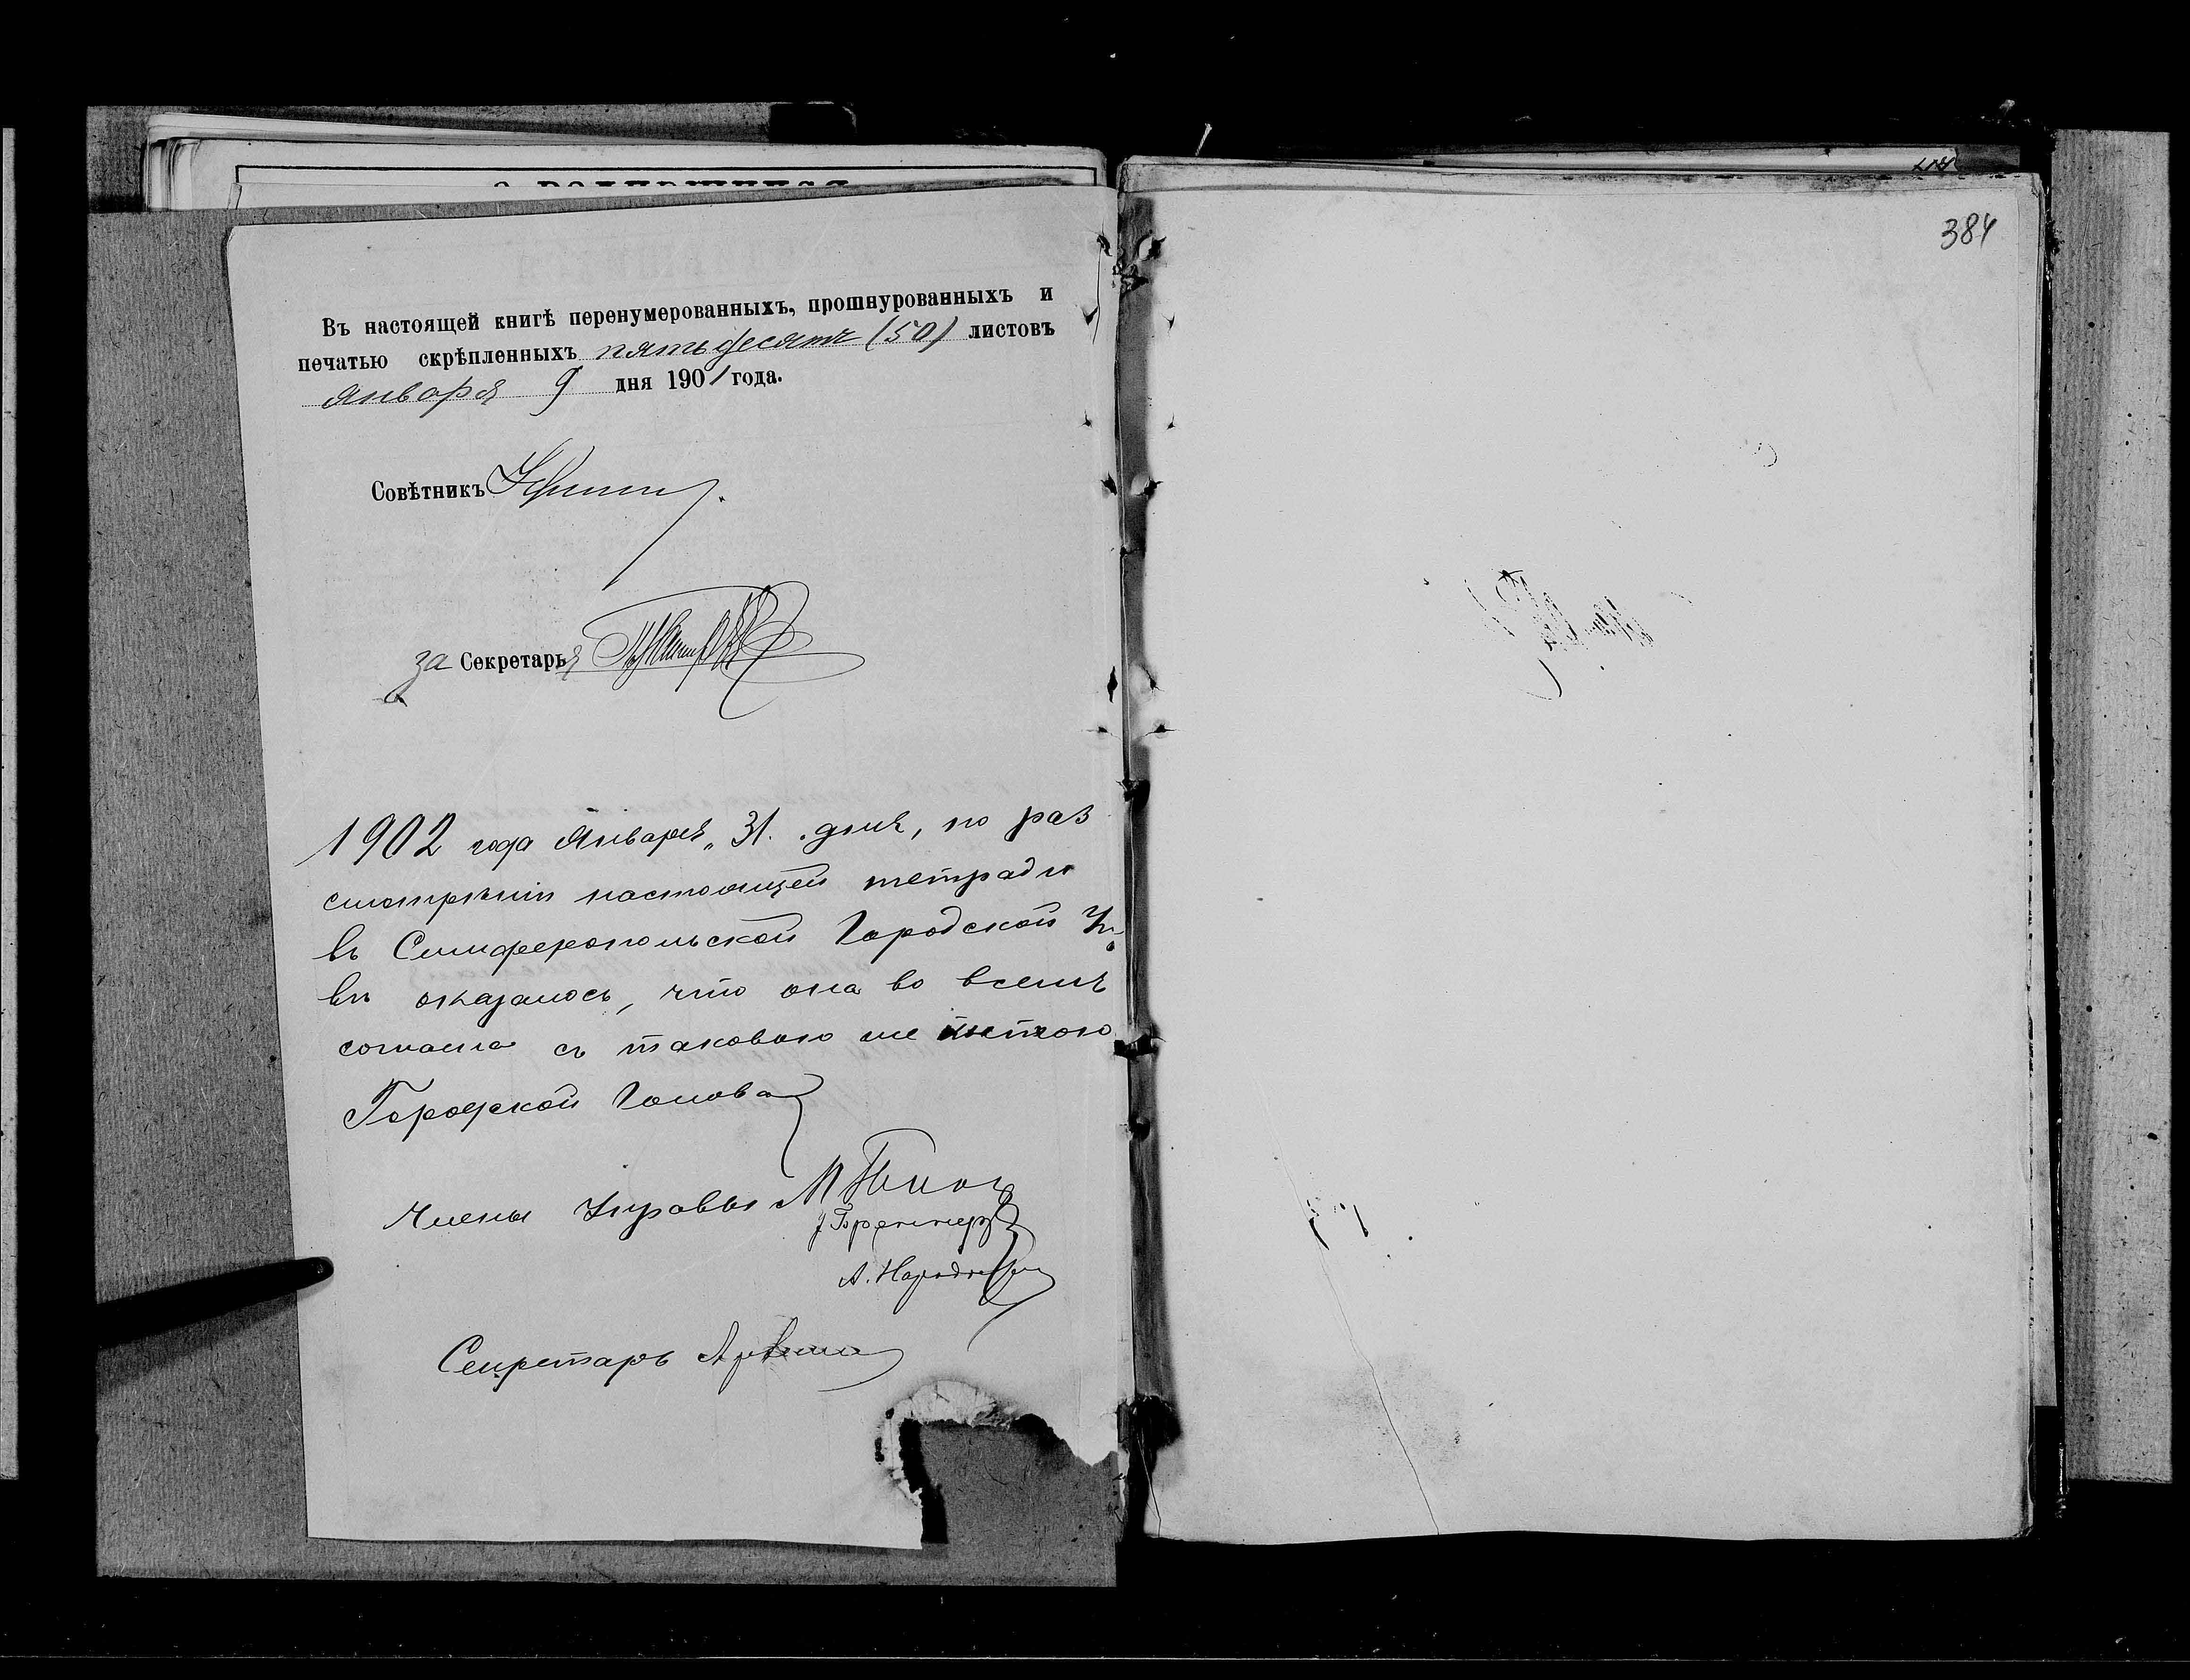 384
Въ настоящей книгѣ перенумерованныхъ, прошнурованныхъ и
печатью скрѣпленныхъ пятьдесятъ (50) листовъ
января 9 дня 1901 года.
Совѣтникъ
за Секретаря
1902 года Января „31. дня, по раз
смотрѣніи настоящей тетради
въ Симферопольской Городской Уп
вѣ оказалось, что она во всемъ
согласна съ таковою же
Городской Голова
Члены Управы
А.
Секретарь